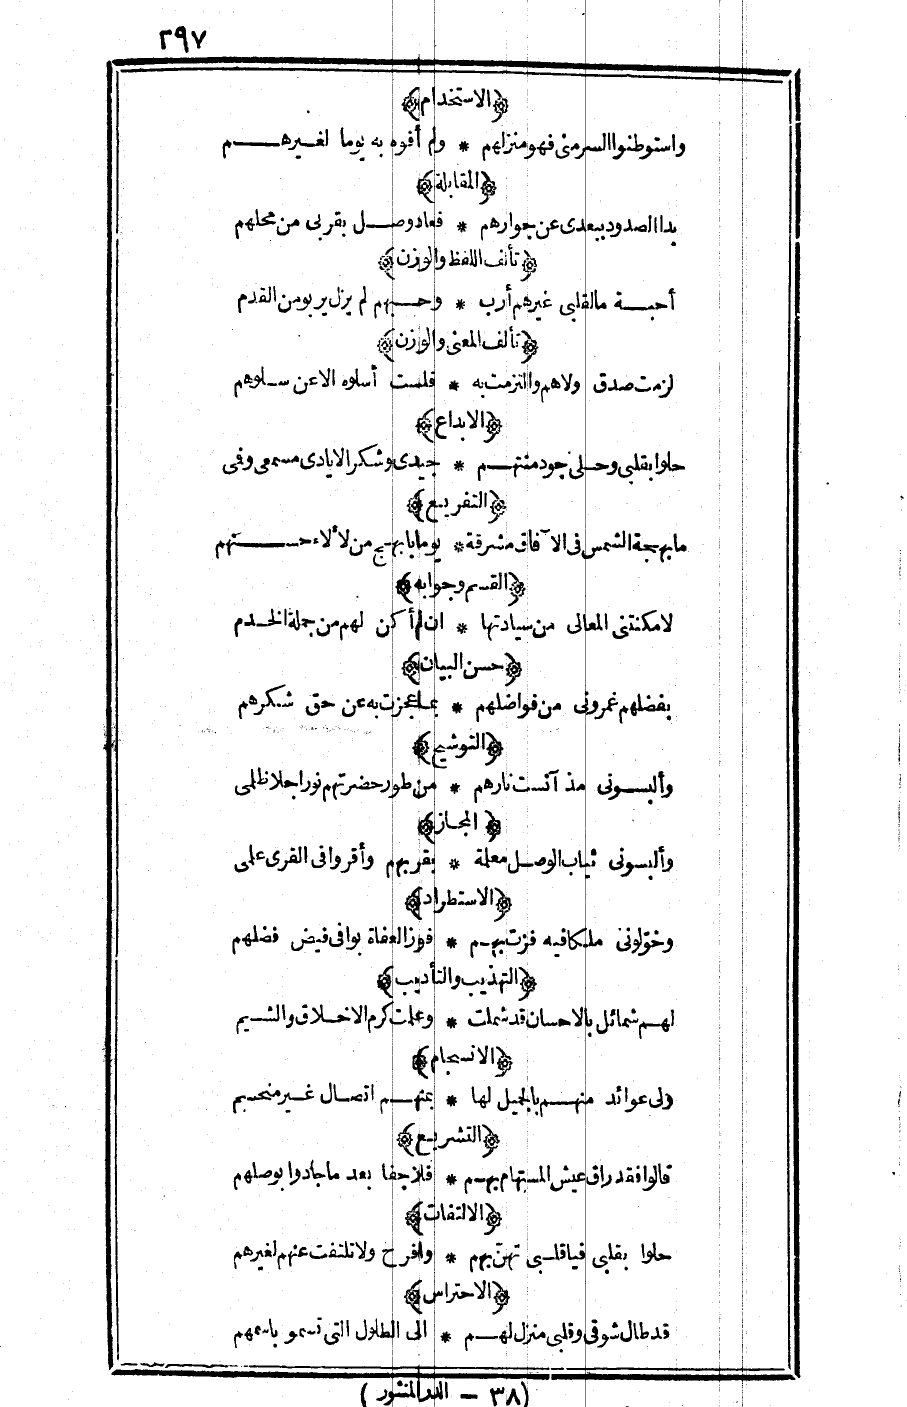 ٢٩٧
﴿الاستخدام﴾
واستوطنوا السر منى فهو منزلهم * ولم أفوه به يوما لغيرهم
﴿المقابلة﴾
بدا الصدود ببعدى عن جوارهم * فعاد وصل بقربى من محلهم
﴿تألف اللفظ والوزن﴾
أحبة مالقلبى غيرهم أرب * وحبهم لم يزل يربو من القدم
﴿تألف المعنى والوزن﴾
لزمت صدق ولاهم والتزمت به * فلست أسلوه الا عن سلوهم
﴿الابداع﴾
حلوا بقلبى وحلى جود منتهم * جيدى وشكر الايادى مسمعى وفى
﴿التفريع﴾
ما بهجة الشمس فى الآفاق مشرقة * يوما بابهج من لألاء حسنهم
﴿القسم وجوابه﴾
لامكنتنى المعالى من سيادتها * ان لم أكن لهم من جملة الخدم
﴿حسن البيان﴾
بفضلهم غمرونى من فواضلهم * بما عجزت به عن حق شكرهم
﴿التوشيح﴾
وألبسونى مذ آنست نارهم * من طور حضرتهم نورا جلا ظلمى
﴿المجاز﴾
وألبسونى ثياب الوصل معلمة * بقربهم وأقروا فى القرى علمى
﴿الاستطراد﴾
وخولونى ملكا فيه فزت بهم * فوز العفاة بوافى فيض فضلهم
﴿التهذيب والتأديب﴾
لهم شمائل بالاحسان قد شملت * وعلمت كرم الاخلاق والشيم
﴿الانسجام﴾
ولى عوائد منهم بالجميل لها * بمنهم اتصال غير منحسم
﴿التشريع﴾
قالوا فقد راق عيش المستهام بهم * فلا جفا بعد ما جادوا بوصلهم
﴿الالتفات﴾
حلوا بقلبى فيا قلبى تهن بهم * وافرح ولا تلتفت عنهم لغيرهم
﴿الاحتراس﴾
قد طال شوقى وقلبى منزل لهم * الى الطلول التى تسمو باسمهم
(٣٨ - الدر المنثور)